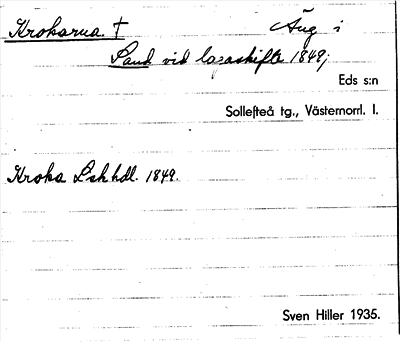 Krokarna † Äng i
Sand vid lagaskifte 1849;
Eds s:n
Sollefteå tg., Västernorrl. l.
Kroka Lskhdl. 1849.
Sven Hiller 1935.